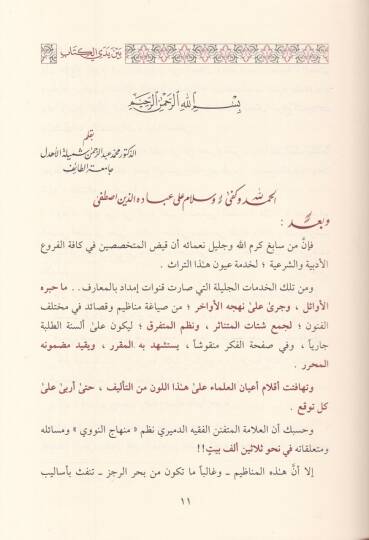 بين يدي الكتاب
بسم الله الرحمن الرحيم
بقلم
الدكتور محمد عبد الرحمن شميلة الأهدل
جامعة الطائف
الحمد لله وكفى ؛ وسلام على عباده الذين اصطفى
وبعد :
فإنَّ من سابغ كرم الله وجليل نعمائه أن قيض المتخصصين في كافة الفروع
الأدبية والشرعية ؛ لخدمة عيون هٰذا التراث .
ومن تلك الخدمات الجليلة التي صارت قنوات إمداد بالمعارف . . ما حبره
الأوائل ، وجرىٰ علىٰ نهجه الأواخر ؛ من صياغة مناظيم وقصائد في مختلف
الفنون ؛ لجمع شتات المتناثر ، ونظم المتفرق ؛ ليكون علىٰ ألسنة الطلبة
جارياً ، وفي صفحة الفكر منقوشاً ، يستشهد به المقرر ، ويقيد مضمونه
المحرر .
وتهافتت أقلام أعيان العلماء علىٰ هٰذا اللون من التأليف ، حتىٰ أربىٰ علىٰ
كل توقع .
وحسبك أن العلامة المتفنن الفقيه الدميري نظم « منهاج النووي » ومسائله
ومتعلقاته في نحو ثلاثين ألف بيت!!
إلا أنَّ هٰذه المناظيم ـ وغالباً ما تكون من بحر الرجز ـ تنفث بأساليب
١١